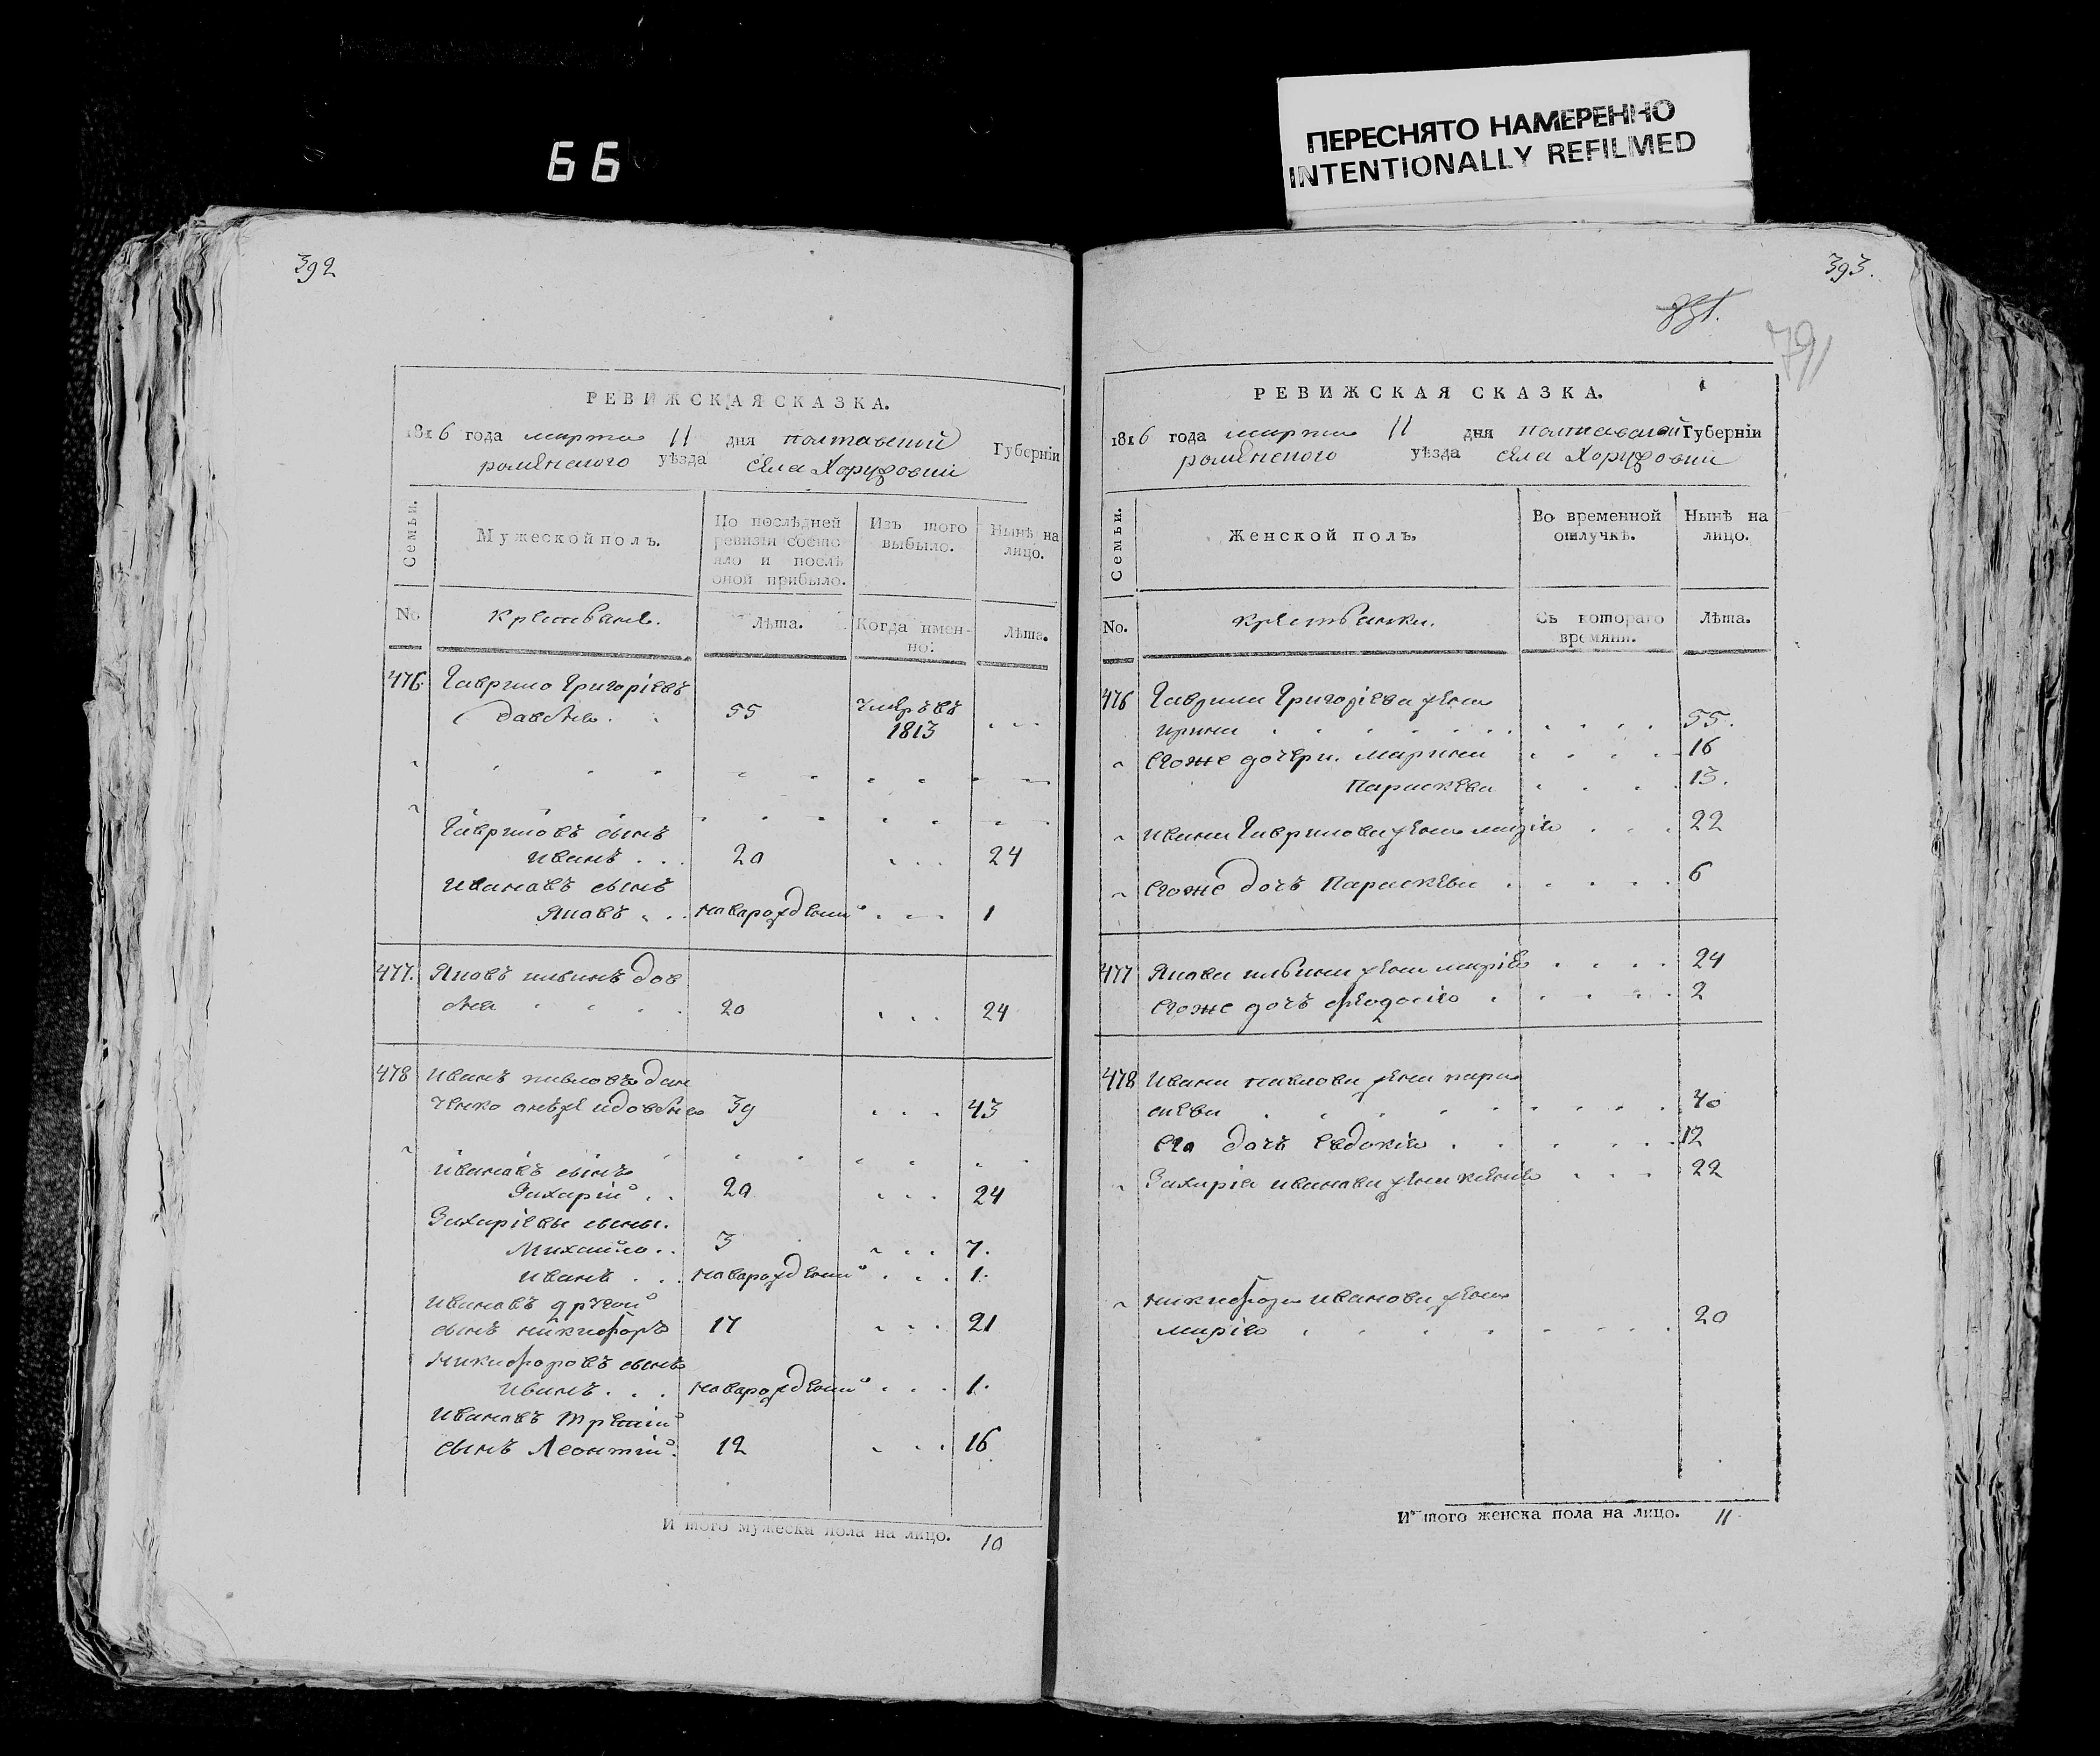 66
ПЕРЕСНЯТО НАМЕРЕННО
INTENTIONALLY REFILMED
392
РЕВИЖСКАЯ СКАЗКА.
1816 года марта 11 дня полтавской Губерніи
роменского уѣзда села Хоружовки
Семьи.
Мужеской полъ.
По послѣдней ревизіи состояло и послѣ оной прибыло.
Изъ того выбыло.
Нынѣ на лицо.
No.
крестьяне.
Лѣта.
Когда именно.
Лѣта.
476. Гаврило Григоріевъ
55 умеръ въ 1813
Гавриловъ сынъ
иванъ 20 24
ивановъ сынъ
Яковъ новорожденный 1
477. Яковъ
20 24
478 иванъ павловъ
39 43
ивановъ сынъ
Захарій 20 24
Захаріевы сыны.
Михайло 3 7.
иванъ новорожденный 1.
ивановъ другой
сынъ никифоръ 17 21
никифоровъ сынъ
иванъ новорожденный 1.
ивановъ третій
сынъ Леонтій 12 16
И того мужеска пола на лицо. 10
393.
791
РЕВИЖСКАЯ СКАЗКА.
1816 года марта 11 дня полтавской Губерніи
роменского уѣзда села Хоружовки
Семьи.
Женской полъ.
Во временной отлучкѣ.
Нынѣ на лицо.
No.
крестьянки.
Съ котораго времяни.
Лѣта.
476 Гаврила Григоріева жена
ирина 55.
Егоже дочери. марина 16
Параскева 13.
ивана Гаврилова жена марія 22
Егоже дочь Параскева 6
477 Якова жена марія 24
Егоже дочь феодосія 2
478 ивана павлова жена пара
скева 40
Его дочь Евдокія 12
Захарія иванова жена ксенія 22
никифора иванова жена
марія 20
И того женска пола на лицо. 11